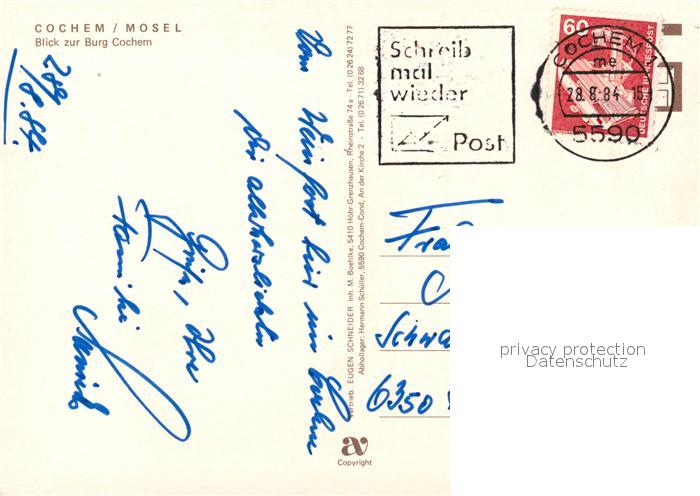 COCHEM / MOSEL
Blick zur Burg Cochem
28/8.84.
Vom Weinfort hier in Cochem
die allerherzlichsten
Grüße, Ihre
Familie
Vertrieb: EUGEN SCHNEIDER Inh. M. Boehlke, 5410 Höhr-Grenzhausen, Rheinstraße 74a - Tel. (0 26 24) 72 77
Abhollager: Hermann Schüller, 5590 Cochem-Cond, An der Kirche 2 - Tel. (0 26 71) 32 68
av
Copyright
Schreib
mal
wieder
Post
60
DEUTSCHE BUNDESPOST
COCHEM
me
28.8.84-15
5590
Frau
Schwa
6350
privacy protection
Datenschutz